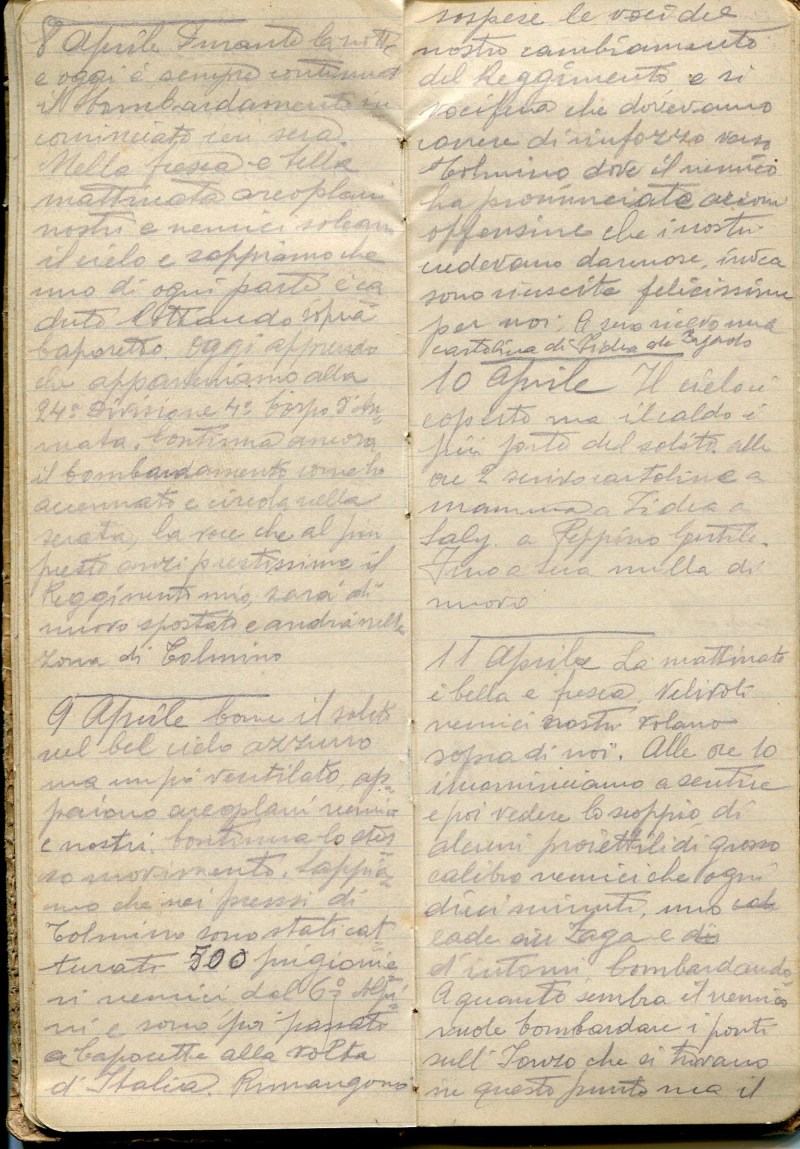 8 Aprile Durante la notte
e oggi è sempre continuato
il bombardamento in
cominciato ieri sera
Nella fresca e bella
mattinata areoplani
nostri e nemici solcano
il cielo e sappiamo che
uno di ogni parte è ca
duto lottando sopra
Caporetto. Oggi apprendo
che apparteniamo alla
24ª Divisione 4º Corpo d'Ar=
mata. Continua ancora
il bombardamento come ho
accennato e circola nella
serata, la voce che al più
presto anzi prestissimo il
Reggimento mio, sarà di
nuovo spostato e andrà nella
zona di Tolmino
9 Aprile Come il solito
nel bel cielo azzurro
ma un pò ventilato, ap=
paiono areoplani nemici
e nostri. Continua lo stes
so movimento. Sappia=
mo che nei pressi di
Tolmino sono stati cat
turati 500 prigionie
ri nemici dal 6º Alpi
ni e sono poi passati
a Caporetto alla volta
d'Italia. Rimangono
sospese le voci del
nostro cambiamento
del Reggimento e si
vocifera che dovevamo
correre di rinforzo verso
Tolmino dove il nemico
ha pronunciato azioni
offensive che i nostri
credevano dannose, invece
sono riuscite felicissime
per noi. A sera ricevo una
cartolina di Lidia da
10 Aprile Il cielo è
coperto ma il caldo è
più forte del solito. alle
ore 2 scrivo cartoline a
mamma a Lidia a
Saly. a Peppino Gentile.
Fino a sera nulla di
nuovo
11 Aprile La mattinata
è bella e fresca, Velivoli
nemici nostri volano
sopra di noi. Alle ore 10
incominciamo a sentire
e poi vedere lo scoppio di
alcuni proiettili di grosso
calibro nemici che ogni
dieci minuti, uno cab
cade su Zaga e di
d'intorni bombardando
A quanto sembra il nemico
vuole bombardare i ponti
sull'Isonzo che si trovano
in questo punto ma il